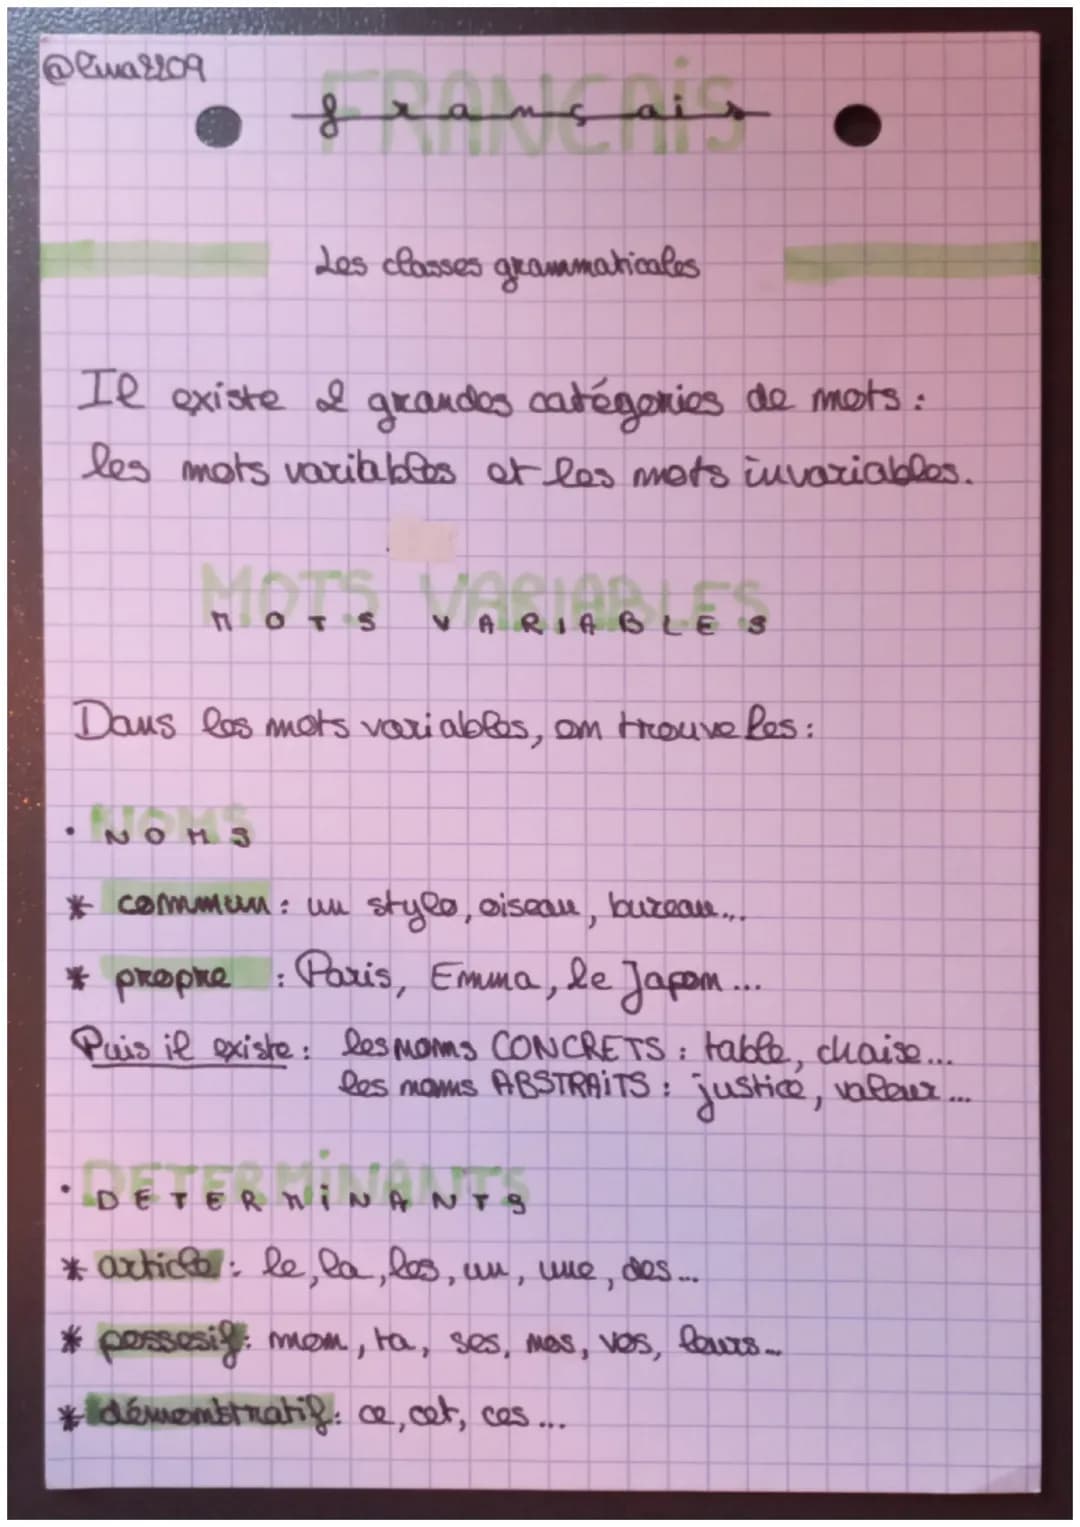 @lina2209
FRANCAIS
français
Les classes grammaticales
Il existe 2 grandes catégories de mots :
les mots variables et les mots invariables.
MOTS VARIABLES
MOTS VARIABLES
Dans les mots variables, on trouve les :
• NOMS
NOMS
* commun : un stylo, oiseau, bureau...
* propre : Paris, Emma, le Japon...
Puis il existe : les noms CONCRETS : table, chaise...
les noms ABSTRAITS : justice, valeur...
• DETERMINANTS
DETERMINANTS
* article : le, la, les, un, une, des...
* possesif : mon, ta, ses, nos, vos, leurs...
* démonstratif : ce, cet, ces...